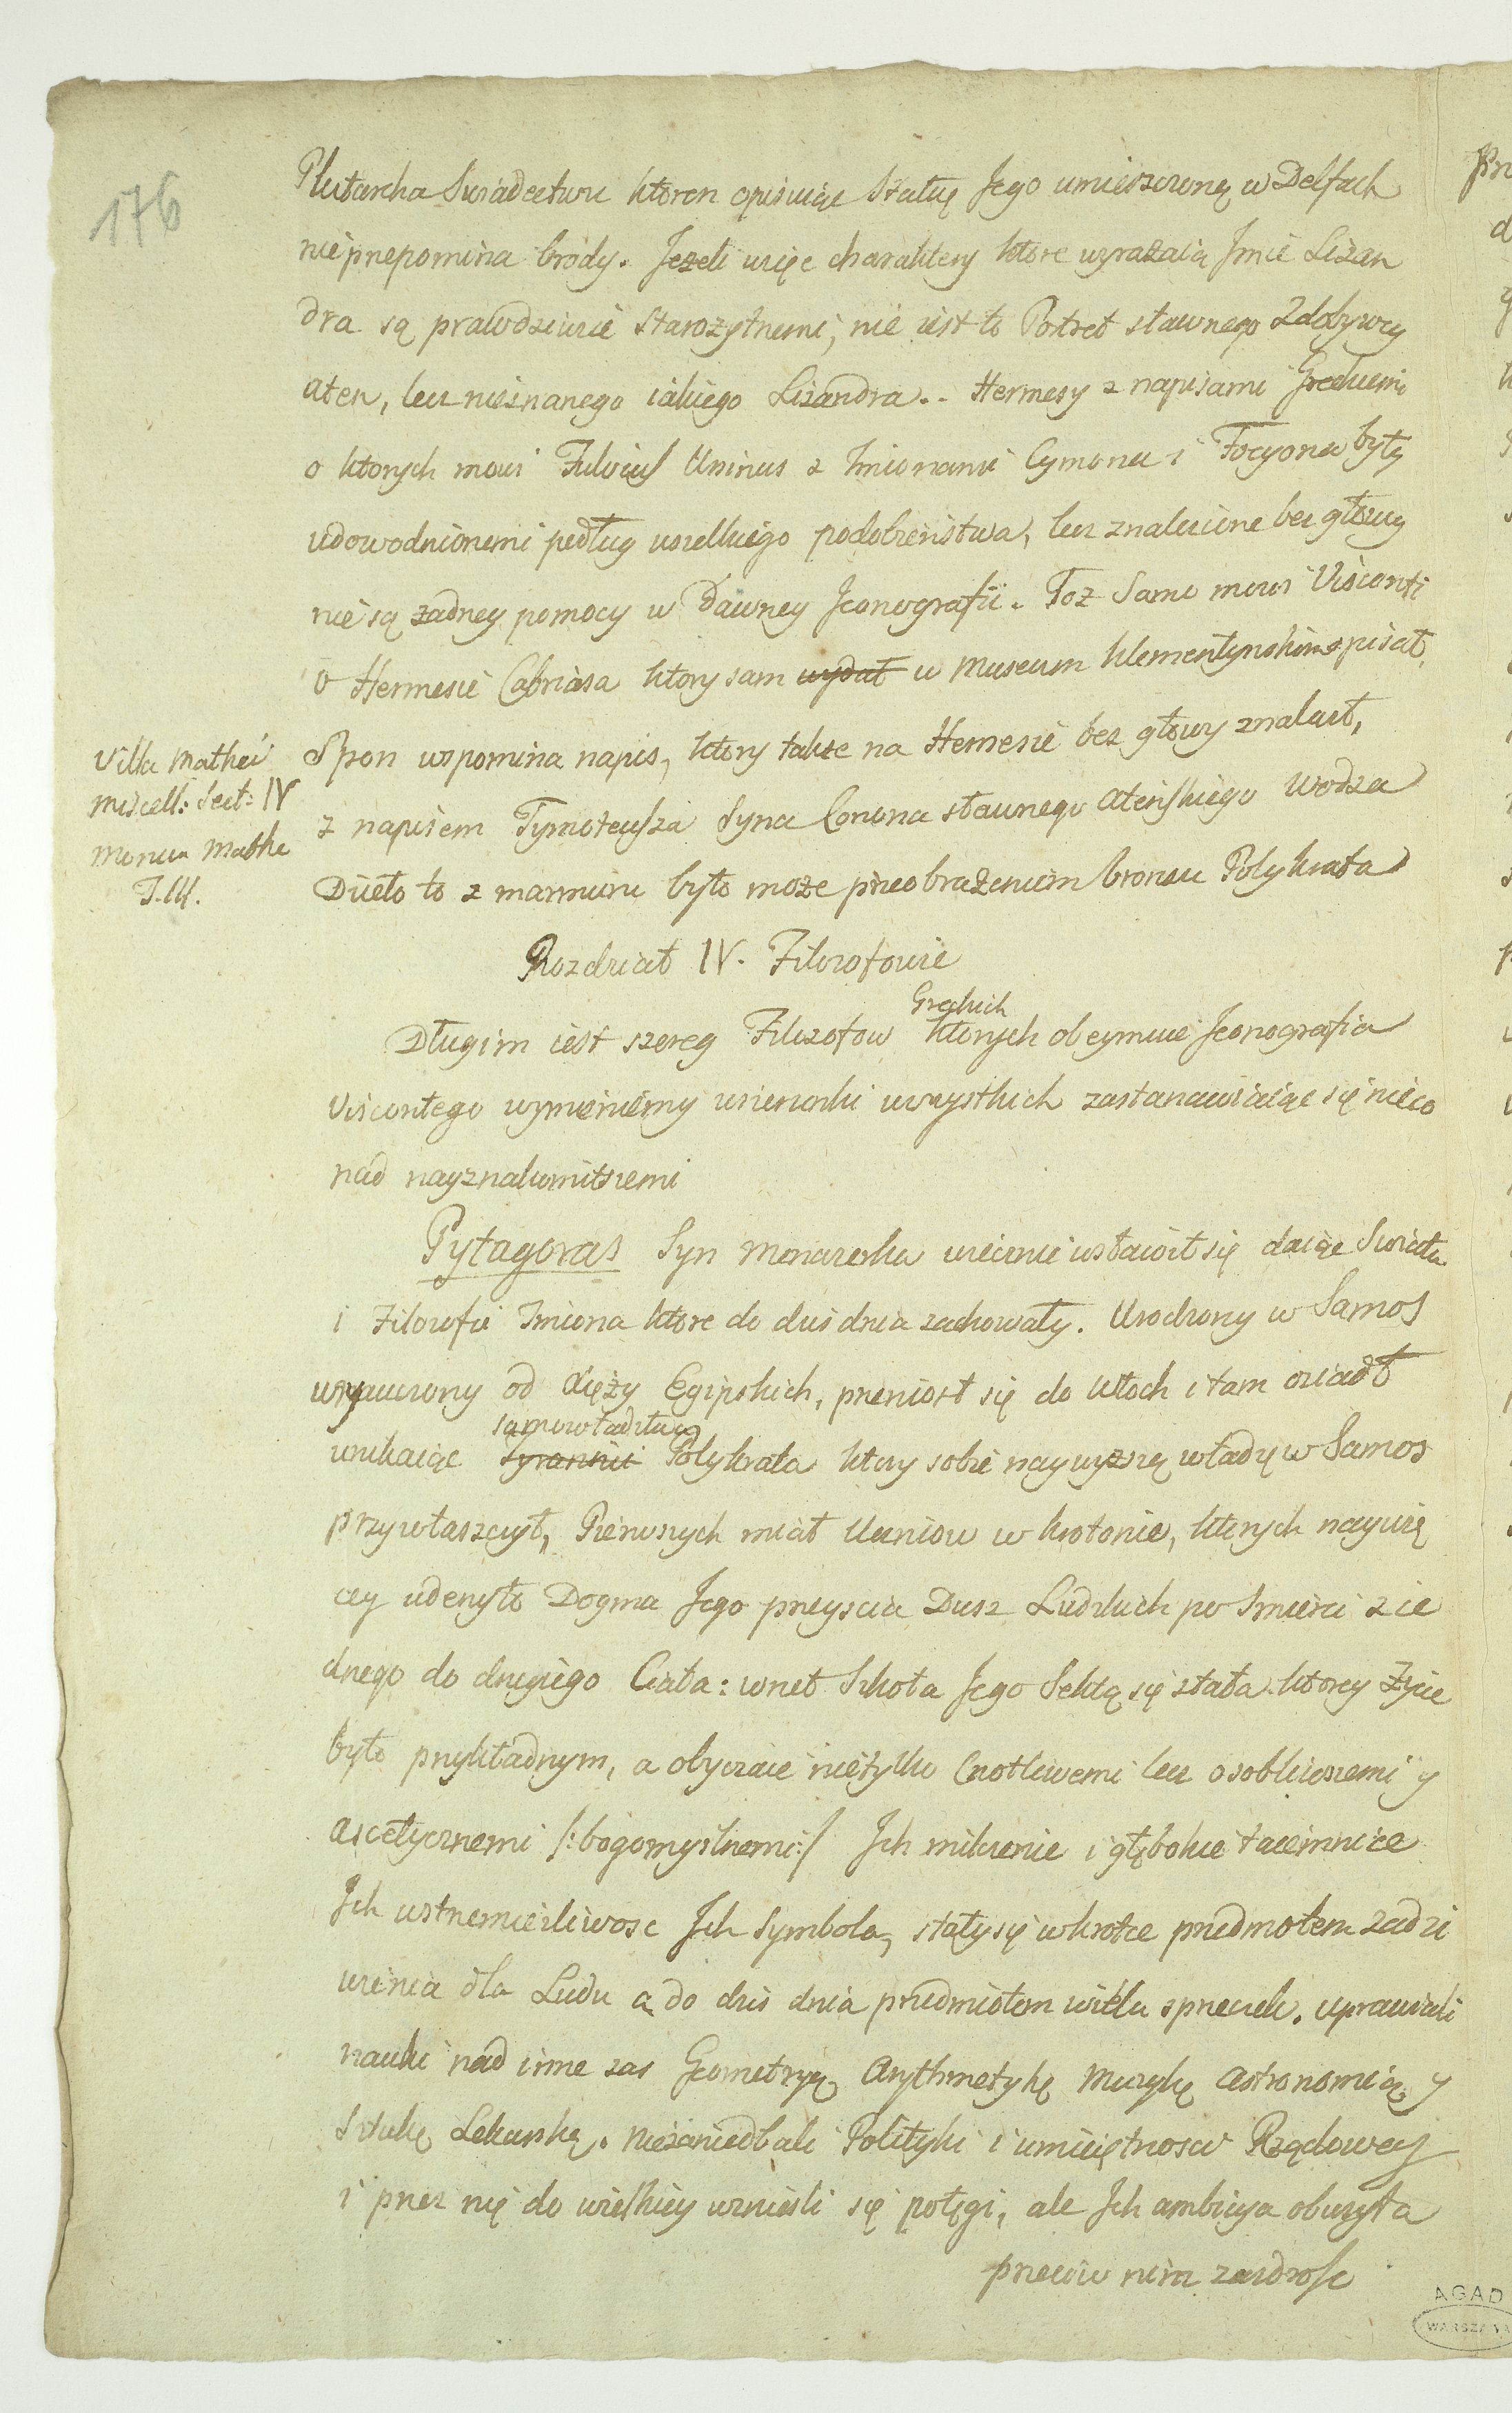 176
Plutarcha Swiadectwu ktoren opisuiąc Statuę Jego umieszczoną w Delfach
nie przepomina brody. Jezeli więc charaktery ktore wyrazaią Jmie Lizan
dra są prawdziwie Starozytnemi, nie iest to Portret sławnego Zdobywcy
aten, lecz nieznanego iakiego Lizandra.. Hermesy z napisami Greckiemi
o ktorych mowi Fulvius Ursinus z Jmionami Cymona i Focyona były
udowodnionemi podług wszelkiego podobieństwa, lecz znalezione bez głowy
nie są zadney pomocy w Dawney Jconografii. Toz Samo mowi Visconti
o Hermesie Cabriasa ktory sam wydał w Museum Klementynskim opisał,
Villa Mathei
Miscell: Sect: IV
Monum Mathe
T. III.
Spon wspomina napis, ktory takze na Hermesie bez głowy znalazł,
z napisem Tymoteusza Syna Conona sławnego ateńskiego Wodza
Dzieło to z marmuru było moze przeobrazeniem bronzu Polykrata
Rozdział IV. Filozofowie
Greckich
Długim iest szereg Filozofow ktorych obeymuie Jconografia
Viscontego wymieniemy wizerunki wszystkich zastanawiaiąc się nieco
nad nayznakomitszemi
Pytagoras Syn Menazerka wiecznie wsławił się daiąc Swiatu
i Filozofii Jmiona ktore do dzis dnia zachowały. Urodzony w Samos
wyuczony od Xięzy Egipskich, przeniosł się do Włoch i tam osiadł
samowładztwa
unikaiąc Tyrannii Polykrata ktory sobie naywyzszą władzę w Samos
przywłaszczył, Pierwszych miał Uczniow w Krotonie, ktorych naywię
cey uderzyło Dogma Jego przeyscia Dusz Ludzkich po Smierci z ie
dnego do drugiego Ciała: wnet Szkoła Jego Sektą się stała ktorey Zycie
było przykładnym, a obyczaie nietylko Cnotliwemi lecz osobliwszemi y
ascetycznemi /:bogomyslnemi:/ Jch milczenie i głębokie taiemnice
Jch wstrzemiezliwosc Jch Symbola, stały się wkrotce przedmotem zadzi
wienia dla Ludu a do dzis dnia przedmiotem wielu sprzeczek. uprawiali
nauki nad inne zas Geometryą Arythmetykę Muzykę Astronomią y
Sztukę Lekarską. niezaniedbali Polityki i umieiętnosci Rządowey
i przez nię do wielkiey wzniesli się potęgi, ale Jch ambicya oburzyła
przeciw nim zazdrosc
AGAD
WARSZAWA